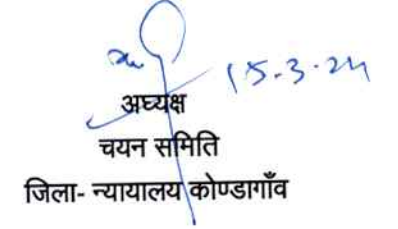 15-3-24
अध्यक्ष
चयन समिति
जिला- न्यायालय कोण्डागाँव